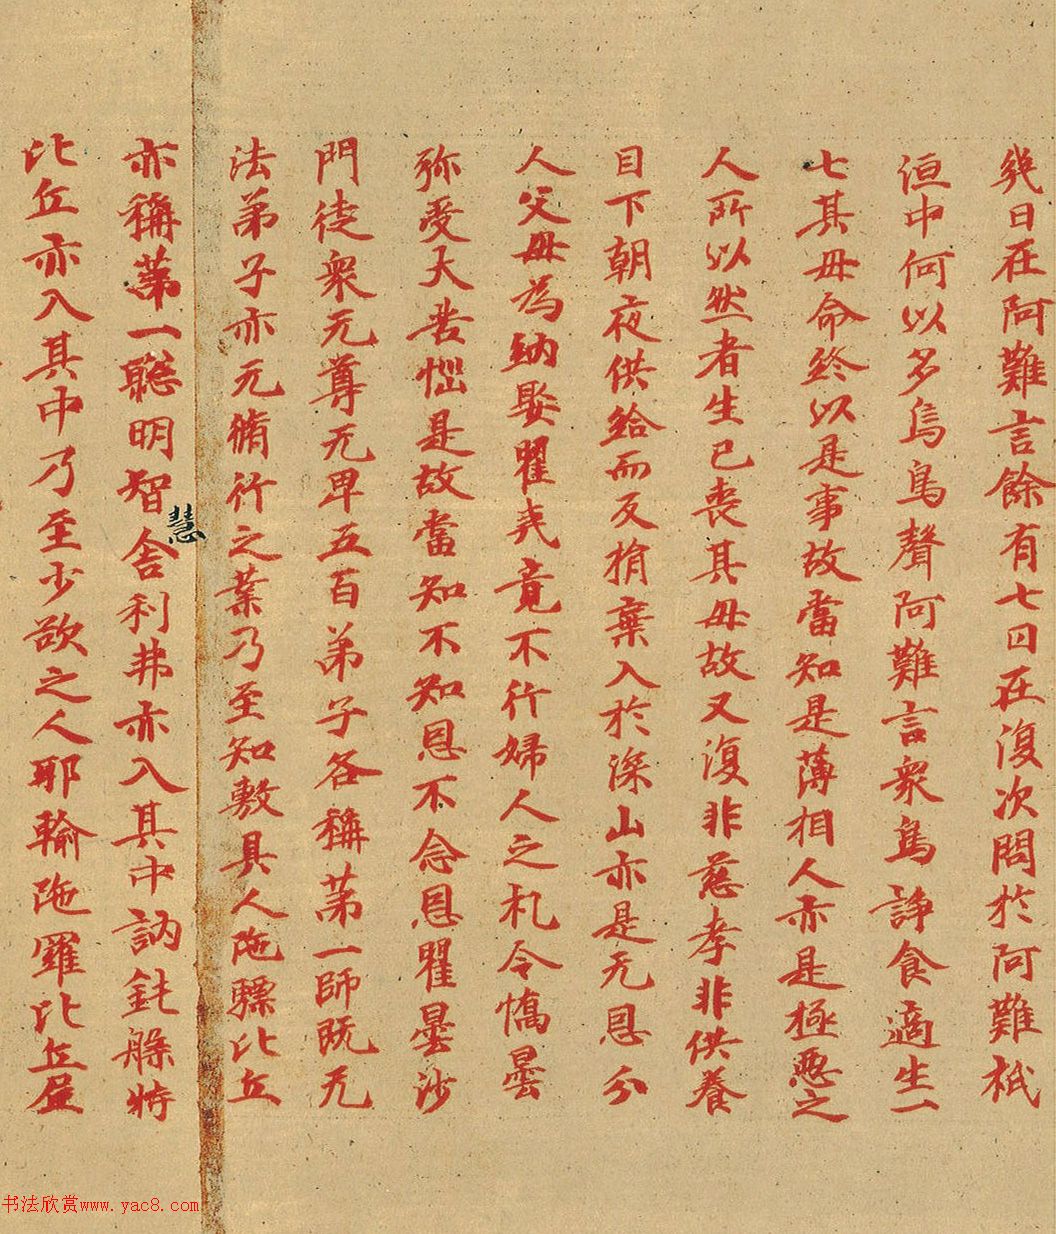 幾日在阿難言餘有七日在復次問於阿難祇
洹中何以多烏鳥聲阿難言衆鳥諍食適生一
七其母命終以是事故當知是薄相人亦是極惡之
人所以然者生已喪其母故又復非慈孝非供養
目下朝夜供給而反捐棄入於深山亦是无恩分
人父母為納娶瞿夷竟不行婦人之札令憍曇
弥受大苦惱是故當知不知恩不念恩瞿曇沙
門徒衆无尊无卑五百弟子各稱苐一師既无
法弟子亦无脩行之業乃至知敷具人陁驃比丘
亦稱苐一聰明智慧舍利弗亦入其中訥鈍槃特
比丘亦入其中乃至少欲之人耶輸陁羅比丘屋
书法欣赏www.yac8.com